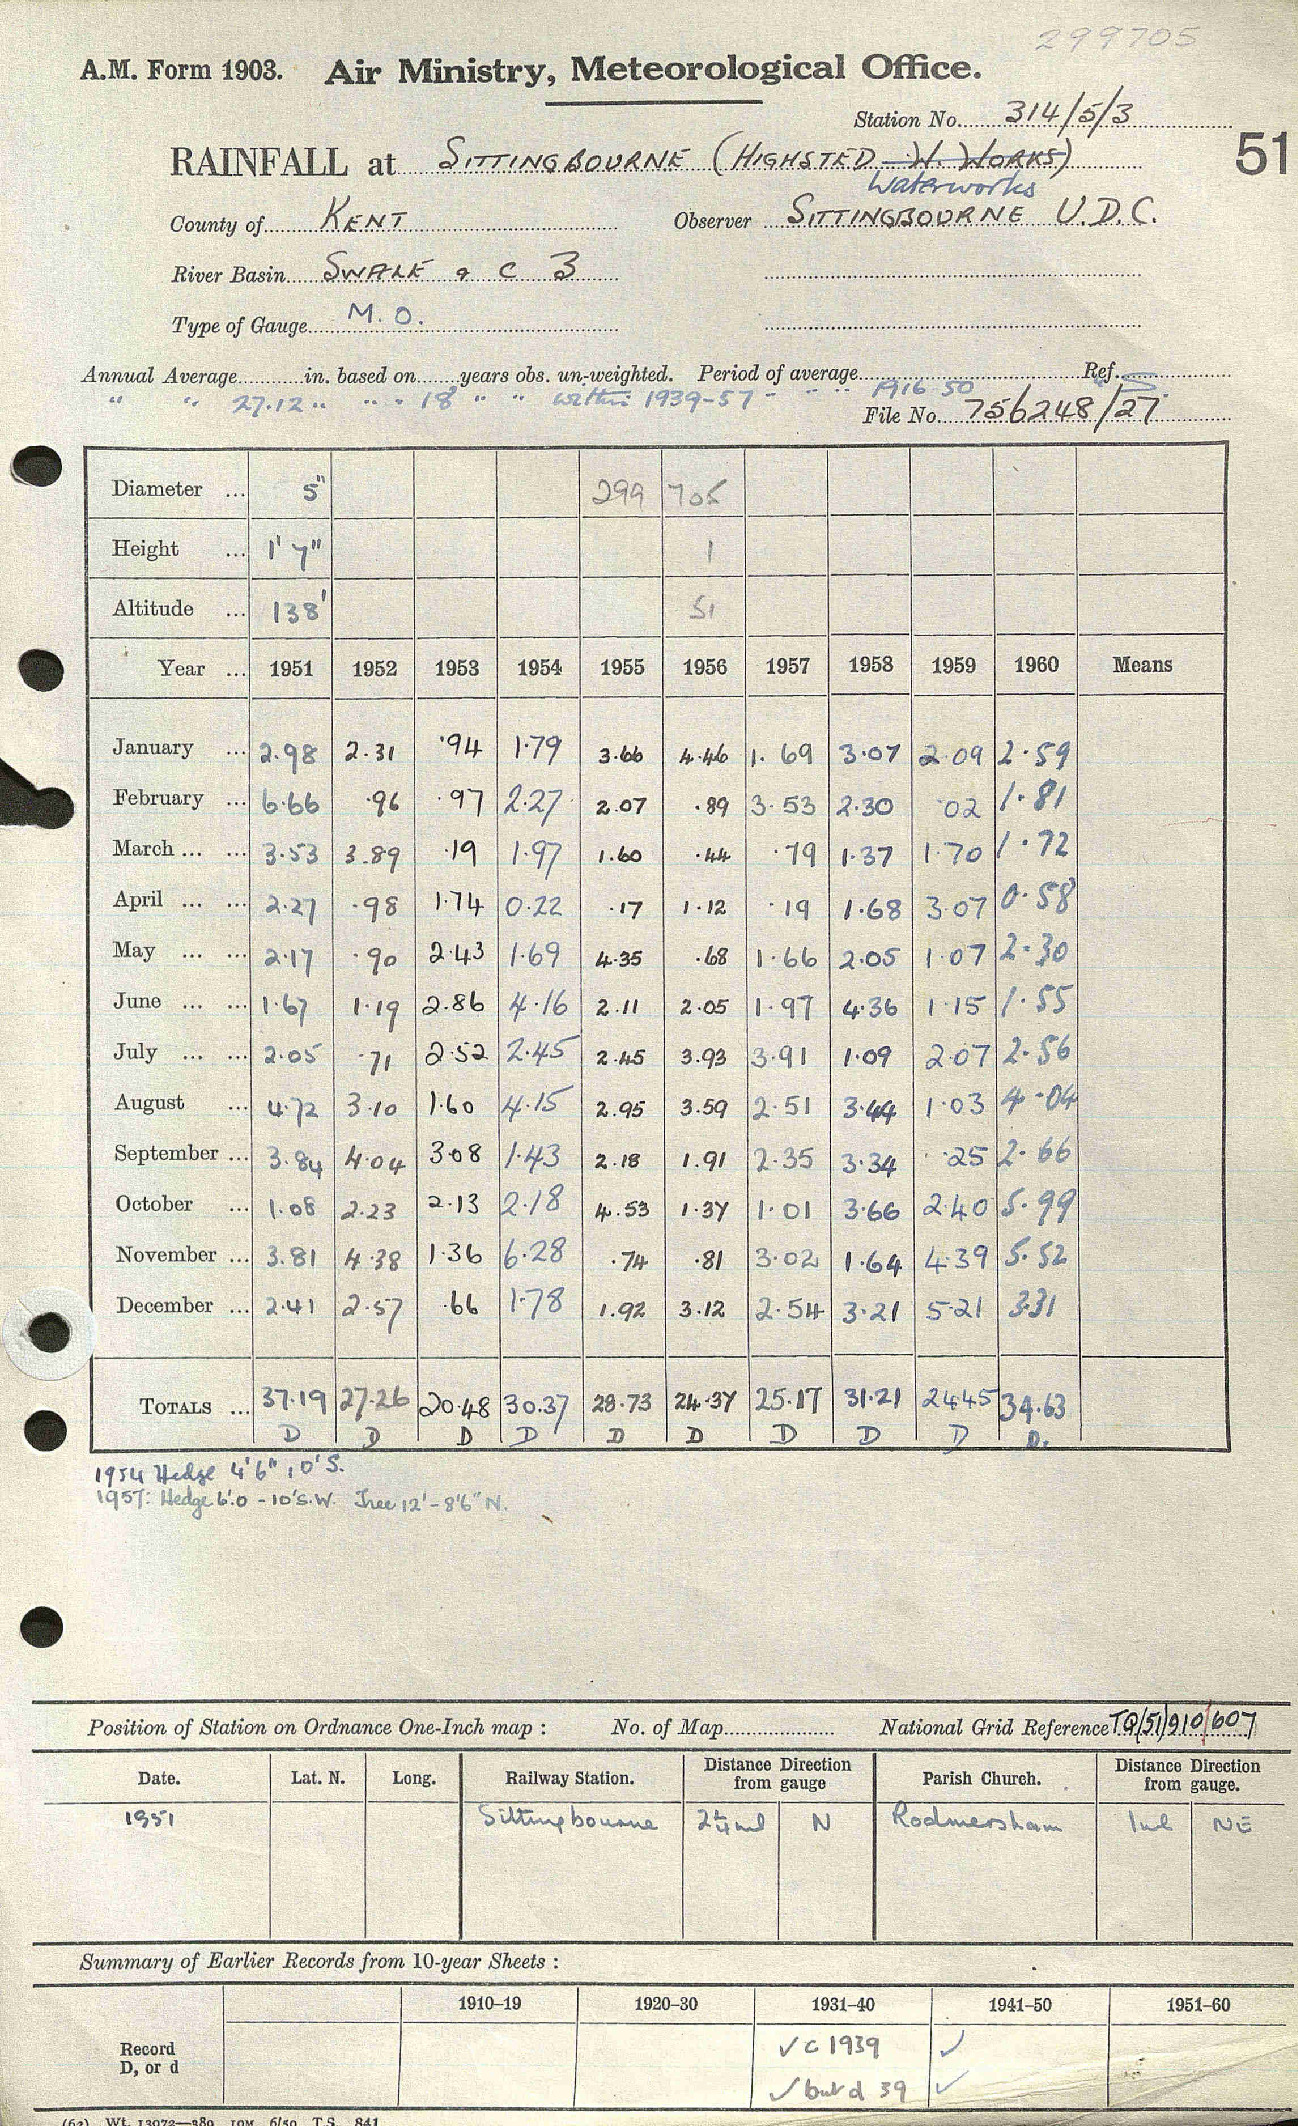 299705
A.M. Form 1903. Air Ministry, Meteorological Office.
Station No. 314/5/3
51
RAINFALL at SITTINGBOURNE (HIGHSTED W. WORKS)
Waterworks
County of KENT Observer SITTINGBOURNE U.D.C.
River Basin SWALE & C 3
Type of Gauge M.O.
Annual Average in. based on years obs. un-weighted. Period of average Ref.
" " 27.12 " " " 18 " " within 1939-57 - " " 1916 50 S.
File No. 756248/27
Diameter ... 5" 299 705
Height ... 1' 7" 1
Altitude ... 138' 51
Year ... 1951 1952 1953 1954 1955 1956 1957 1958 1959 1960 Means
January ... 2.98 2.31 .94 1.79 3.66 4.46 1.69 3.07 2.09 2.59
February ... 6.66 .96 .97 2.27 2.07 .89 3.53 2.30 .02 1.81
March ... ... 3.53 3.89 .19 1.97 1.60 .44 .79 1.37 1.70 1.72
April ... ... 2.27 .98 1.74 0.22 .17 1.12 .19 1.68 3.07 0.58
May ... ... 2.17 .90 2.43 1.69 4.35 .68 1.66 2.05 1.07 2.30
June ... ... 1.67 1.19 2.86 4.16 2.11 2.05 1.97 4.36 1.15 1.55
July ... ... 2.05 .71 2.52 2.45 2.45 3.93 3.91 1.09 2.07 2.56
August ... 4.72 3.10 1.60 4.15 2.95 3.59 2.51 3.44 1.03 4.04
September ... 3.84 4.04 3.08 1.43 2.18 1.91 2.35 3.34 .25 2.66
October ... 1.08 2.23 2.13 2.18 4.53 1.37 1.01 3.66 2.40 5.99
November ... 3.81 4.38 1.36 6.28 .74 .81 3.02 1.64 4.39 5.52
December ... 2.41 2.57 .66 1.78 1.92 3.12 2.54 3.21 5.21 3.31
TOTALS ... 37.19 27.26 20.48 30.37 28.73 24.37 25.17 31.21 24.45 34.63
D D D D D D D D D D.
1954 Hedge 4'6", 10' S.
1957: Hedge 6'.0 - 10' S.W. Tree 12' - 8'6" N.
Position of Station on Ordnance One-Inch map : No. of Map National Grid Reference TQ/51/910/607
Date. Lat. N. Long. Railway Station. Distance Direction from gauge Parish Church. Distance Direction from gauge.
1951 Sittingbourne 2¼ ml N Rodmersham 1 ml NE
Summary of Earlier Records from 10-year Sheets :
1910–19 1920–30 1931–40 1941–50 1951–60
Record ✓ c 1939 ✓
D, or d ✓ but d 39 ✓
(62) Wt. 13072—389 10M 6/50 T.S. 841